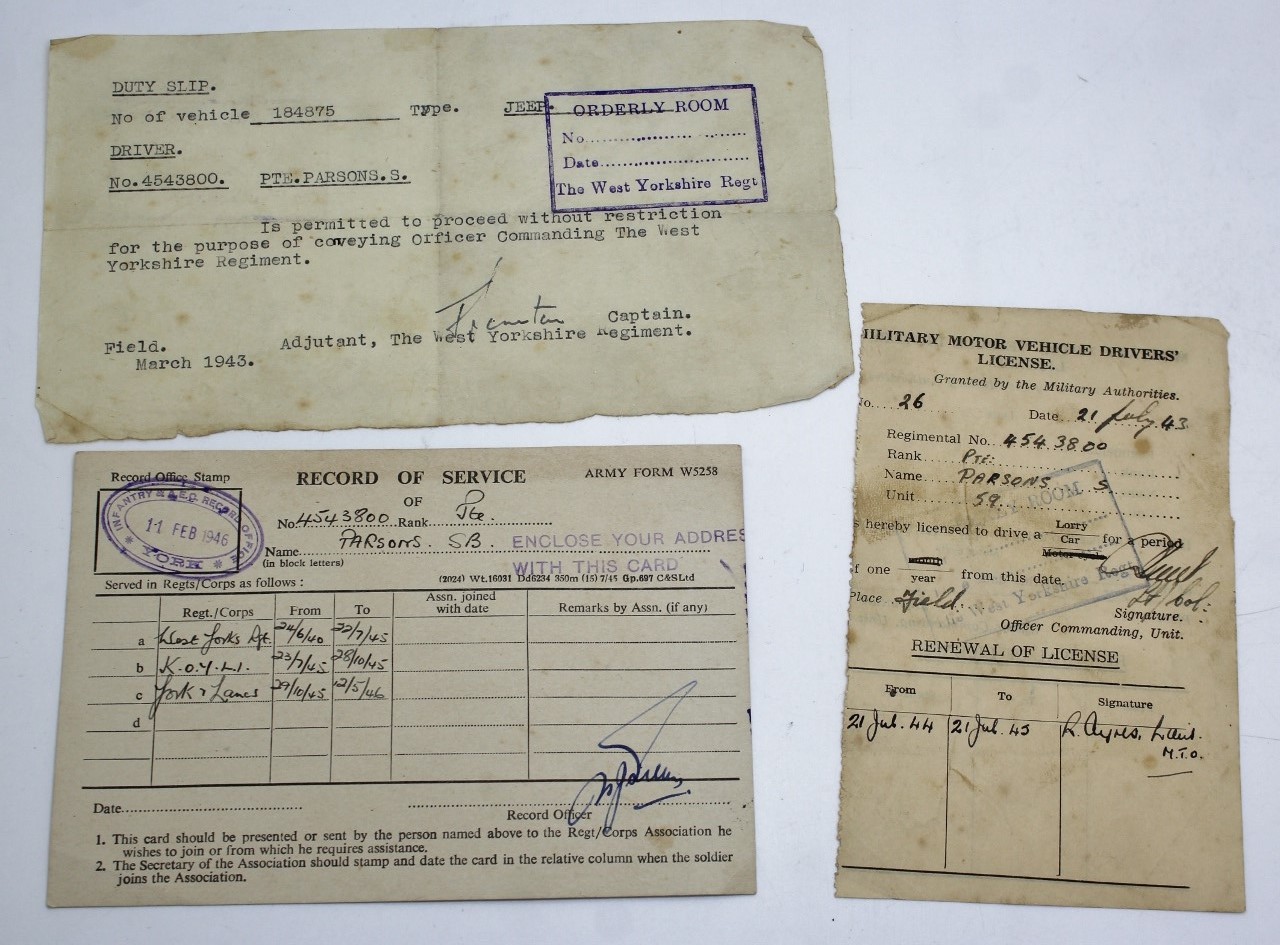 DUTY SLIP.
No of vehicle 184875 Type. JEEP.
DRIVER.
No.4543800. PTE.PARSONS.S.
ORDERLY ROOM
No..............................
Date..............................
The West Yorkshire Regt
Is permitted to proceed without restriction
for the purpose of coveying Officer Commanding The West
Yorkshire Regiment.
Captain.
Adjutant, The West Yorkshire Regiment.
Field.
March 1943.
Record Office Stamp
RECORD OF SERVICE
ARMY FORM W5258
OF
INFANTRY & A.E.C. RECORD OFFICE
11 FEB 1946
YORK
No. 4543800 Rank Pte.
Name PARSONS. SB.
(in block letters)
ENCLOSE YOUR ADDRES
WITH THIS CARD
Served in Regts/Corps as follows :
(2024) Wt.16031 Dd6234 350m (15) 7/45 Gp.697 C&SLtd
Regt./Corps From To Assn. joined with date Remarks by Assn. (if any)
a West Yorks Rgt. 24/6/40 22/7/45
b K.O.Y.L.I. 23/7/45 28/10/45
c York & Lancs 29/10/45 12/5/46
d
Date..............................
Record Officer
1. This card should be presented or sent by the person named above to the Regt/Corps Association he
wishes to join or from which he requires assistance.
2. The Secretary of the Association should stamp and date the card in the relative column when the soldier
joins the Association.
MILITARY MOTOR VEHICLE DRIVERS'
LICENSE.
Granted by the Military Authorities.
No..... 26 Date 21 July 43
Regimental No. 4543800
Rank PTE.
Name PARSONS S.
Unit 59.
s hereby licensed to drive a Lorry
Car for a period
Motor
f one year from this date.
Place Field.
Lt Col:
Signature.
Officer Commanding, Unit.
ROOM
West Yorkshire Regt
RENEWAL OF LICENSE
From To Signature
21 Jul. 44 21 Jul. 45 R. Ayres, Lieut.
M.T.O.